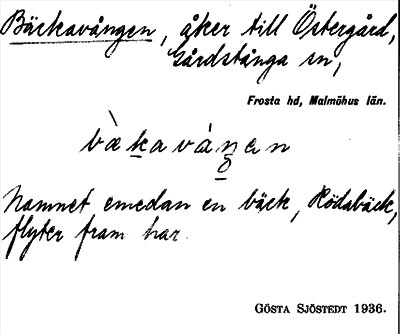 Bäckavången, åker till Östergård,
Gårdstånga sn,
Frosta hd, Malmöhus län.
bὲkavάŋən
Namnet emedan en bäck, Rödabäck,
flyter fram här.
GÖSTA SJÖSTEDT 1936.